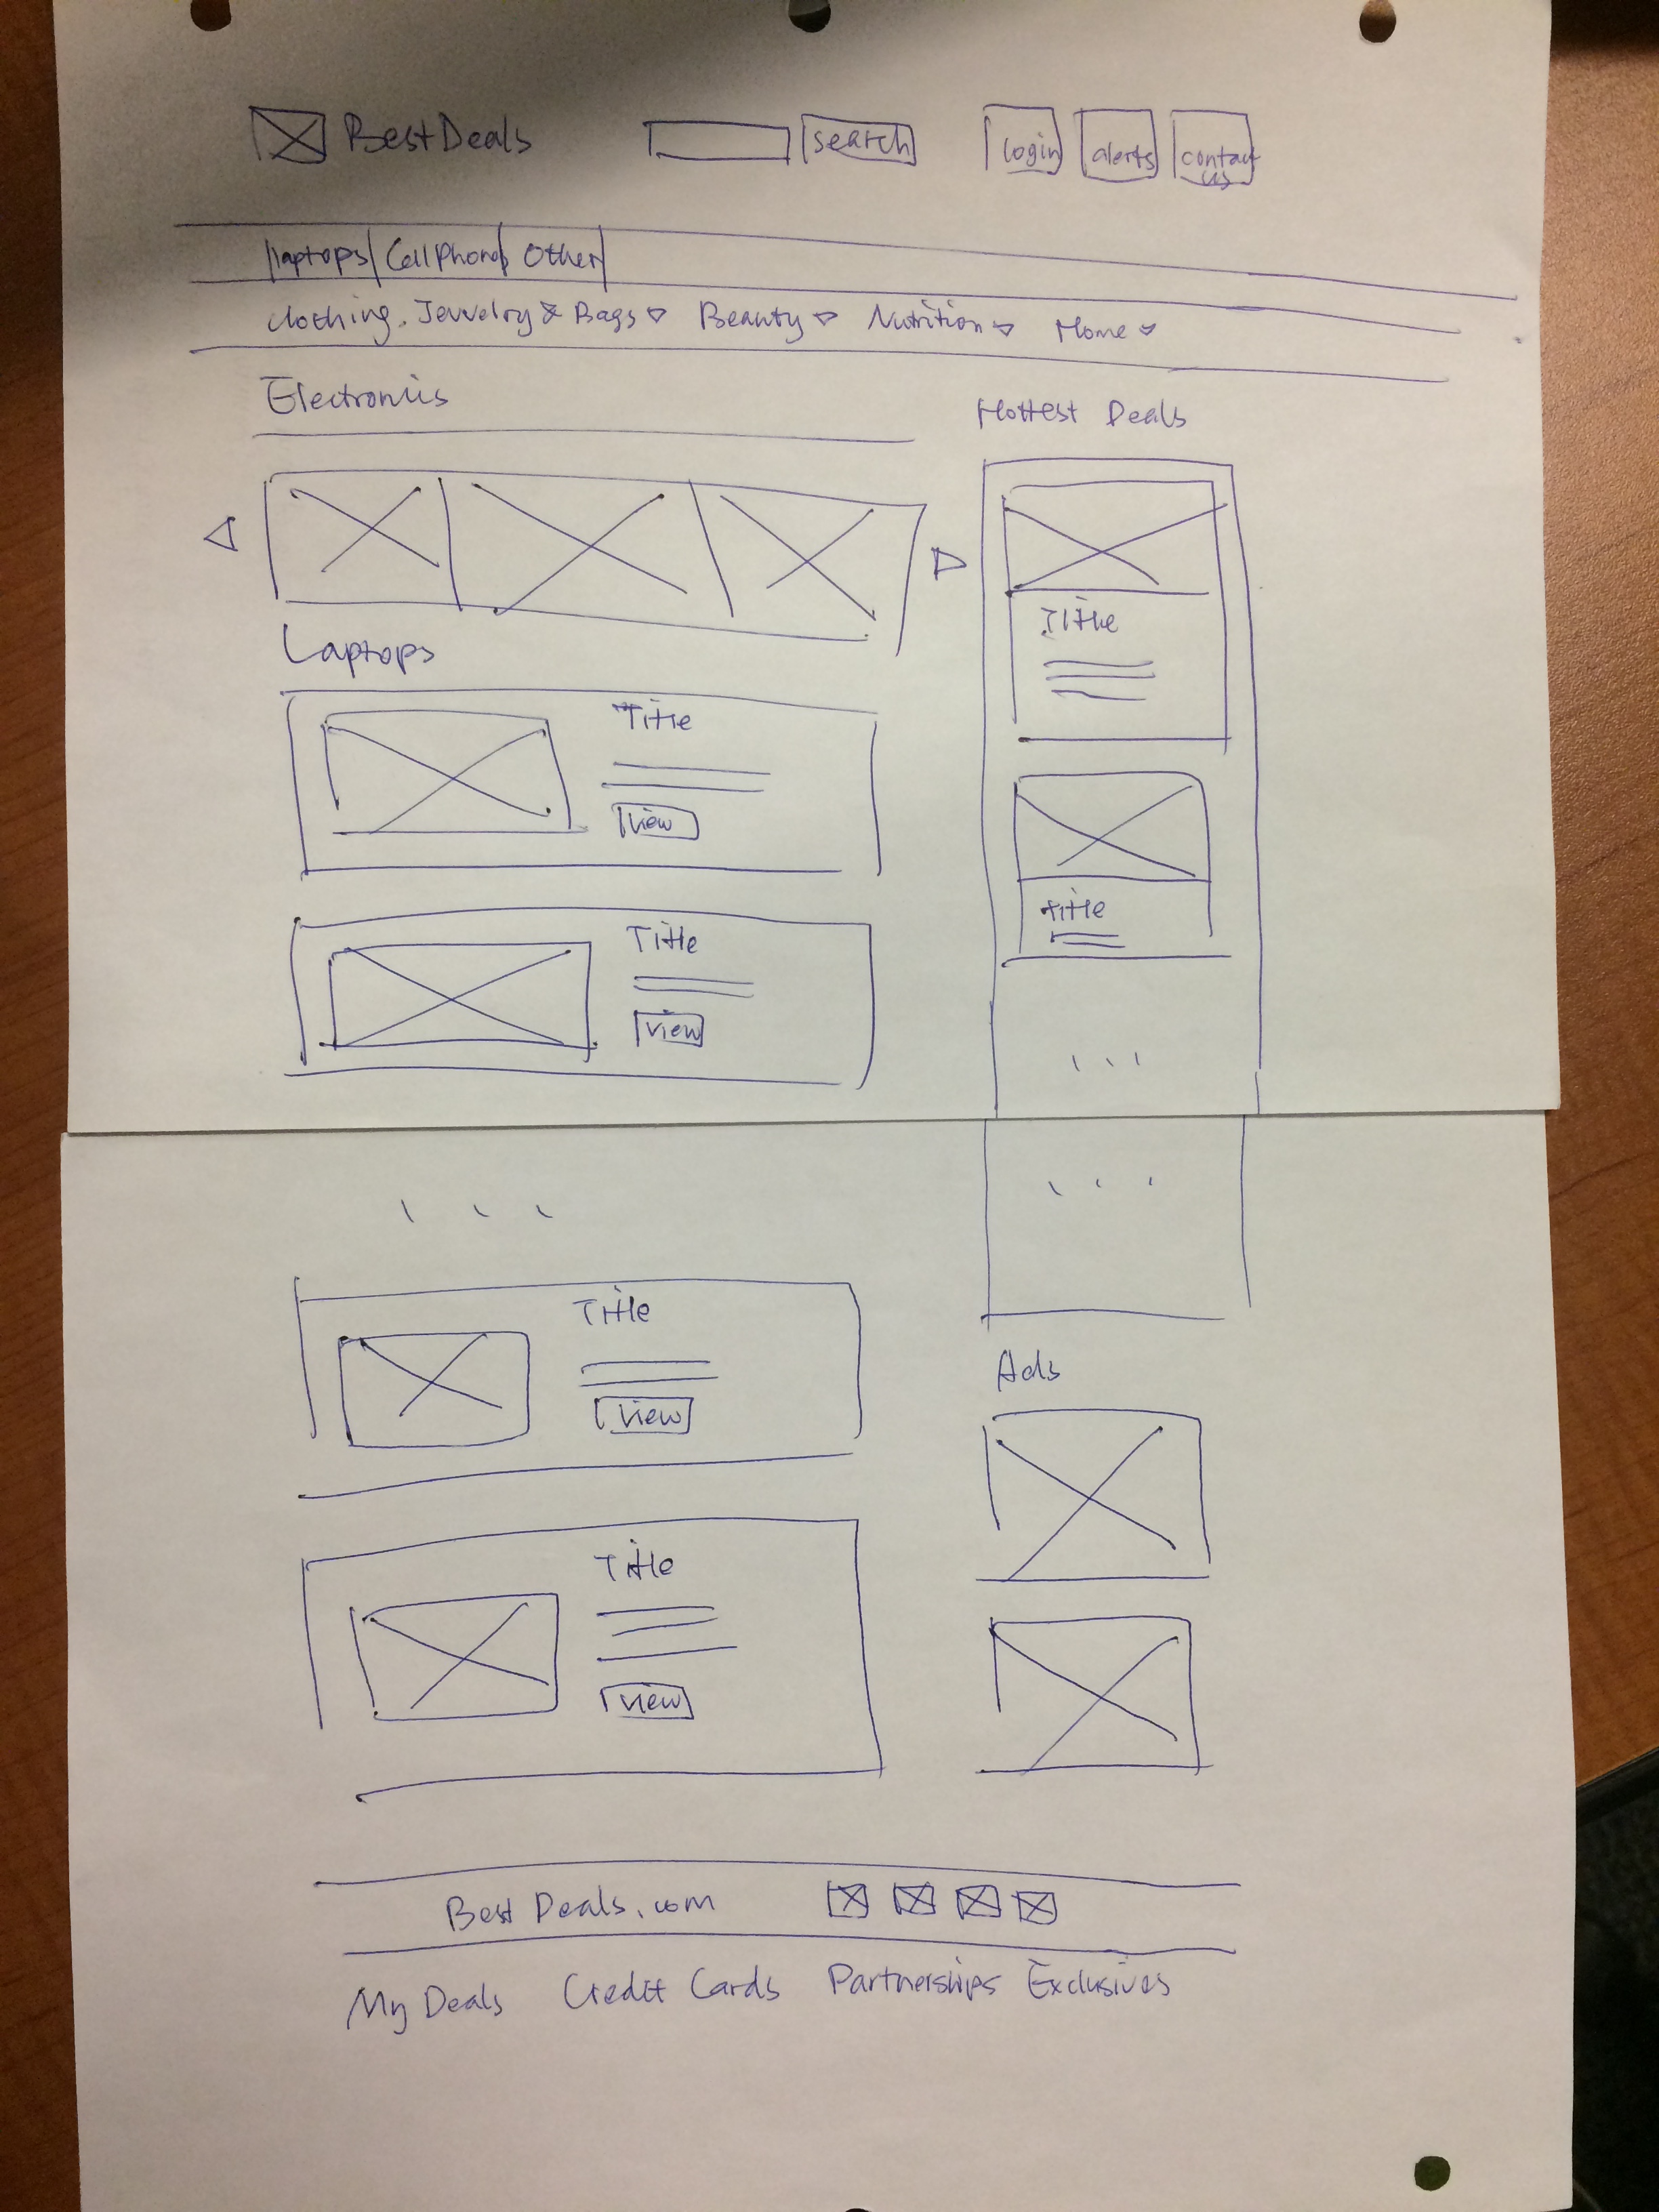 BestDeals search login alerts contact us
laptops Cellphone Other
clothing. Jewelry & Bags Beauty Nutrition Home
Electronics
Hottest Deals
Title
Laptops
Title
View
Title
Title
View
...
...
...
Title
View
Ads
Title
View
Best Deals.com
My Deals Credit Cards Partnerships Exclusives